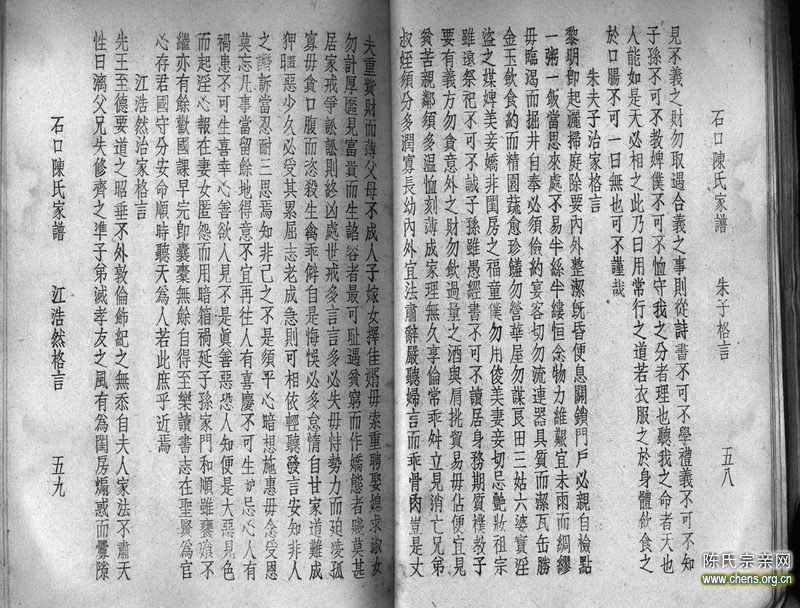 石口陳氏家譜　朱子格言　五八
見不義之財勿取遇合義之事則從詩書不可不學禮義不可不知
子孫不可不教婢僕不可不恤守我之分者理也聽我之命者天也
人能如是天必相之此乃日用常行之道若衣服之於身體飲食之
於口腸不可一日無也可不謹哉
朱夫子治家格言
黎明即起灑掃庭除要內外整潔旣昏便息關鎖門戶必親自檢點
一粥一飯當思來處不易半絲半縷恒念物力維艱宜未雨而綢繆
毋臨渴而掘井自奉必須儉約宴客切勿流連器具質而潔瓦缶勝
金玉飲食約而精園蔬愈珍饈勿營華屋勿謀良田三姑六婆實淫
盜之媒婢美妾嬌非閨房之福童僕勿用俊美妻妾切忌艷妝祖宗
雖遠祭祀不可不誠子孫雖愚經書不可不讀居身務期質樸教子
要有義方勿貪意外之財勿飲過量之酒與肩挑貿易毋佔便宜見
貧苦親鄰須多溫恤刻薄成家理無久享倫常乖舛立見消亡兄弟
叔姪須分多潤寡長幼內外宜法肅辭嚴聽婦言而乖骨肉豈是丈
夫重貲財而薄父母不成人子嫁女擇佳婿毋索重聘娶媳求淑女
勿計厚匳見富貴而生諂容者最可耻遇貧窮而作嬌態者賤莫甚
居家戒爭訟訟則終凶處世戒多言言多必失毋恃勢力而廹凌孤
寡毋貪口腹而恣殺生禽乖僻自是悔悞必多怠惰自甘家道難成
狎暱惡少久必受其累屈志老成急則可相依輕聽發言安知非人
之譖訴當忍耐三思焉知非己之不是須平心暗想施惠毋念受恩
莫忘凡事當留餘地得意不宜再往人有喜慶不可生妒忌心人有
禍患不可生喜幸心善欲人見不是眞善惡恐人知便是大惡見色
而起淫心報在妻女匿怨而用暗箭禍延子孫家門和順雖饔飧不
繼亦有餘歡國課早完即囊橐無餘自得至樂讀書志在聖賢爲官
心存君國守分安命順時聽天爲人若此庶乎近焉
江浩然治家格言
先王至德要道之昭垂不外敦倫飭紀之無忝自夫人家法不肅天
性日漓父兄失修齊之準子弟滅孝友之風有爲閨房煽惑而釁隙
石口陳氏家譜　江浩然格言　五九
陈氏宗亲网
www.chens.org.cn